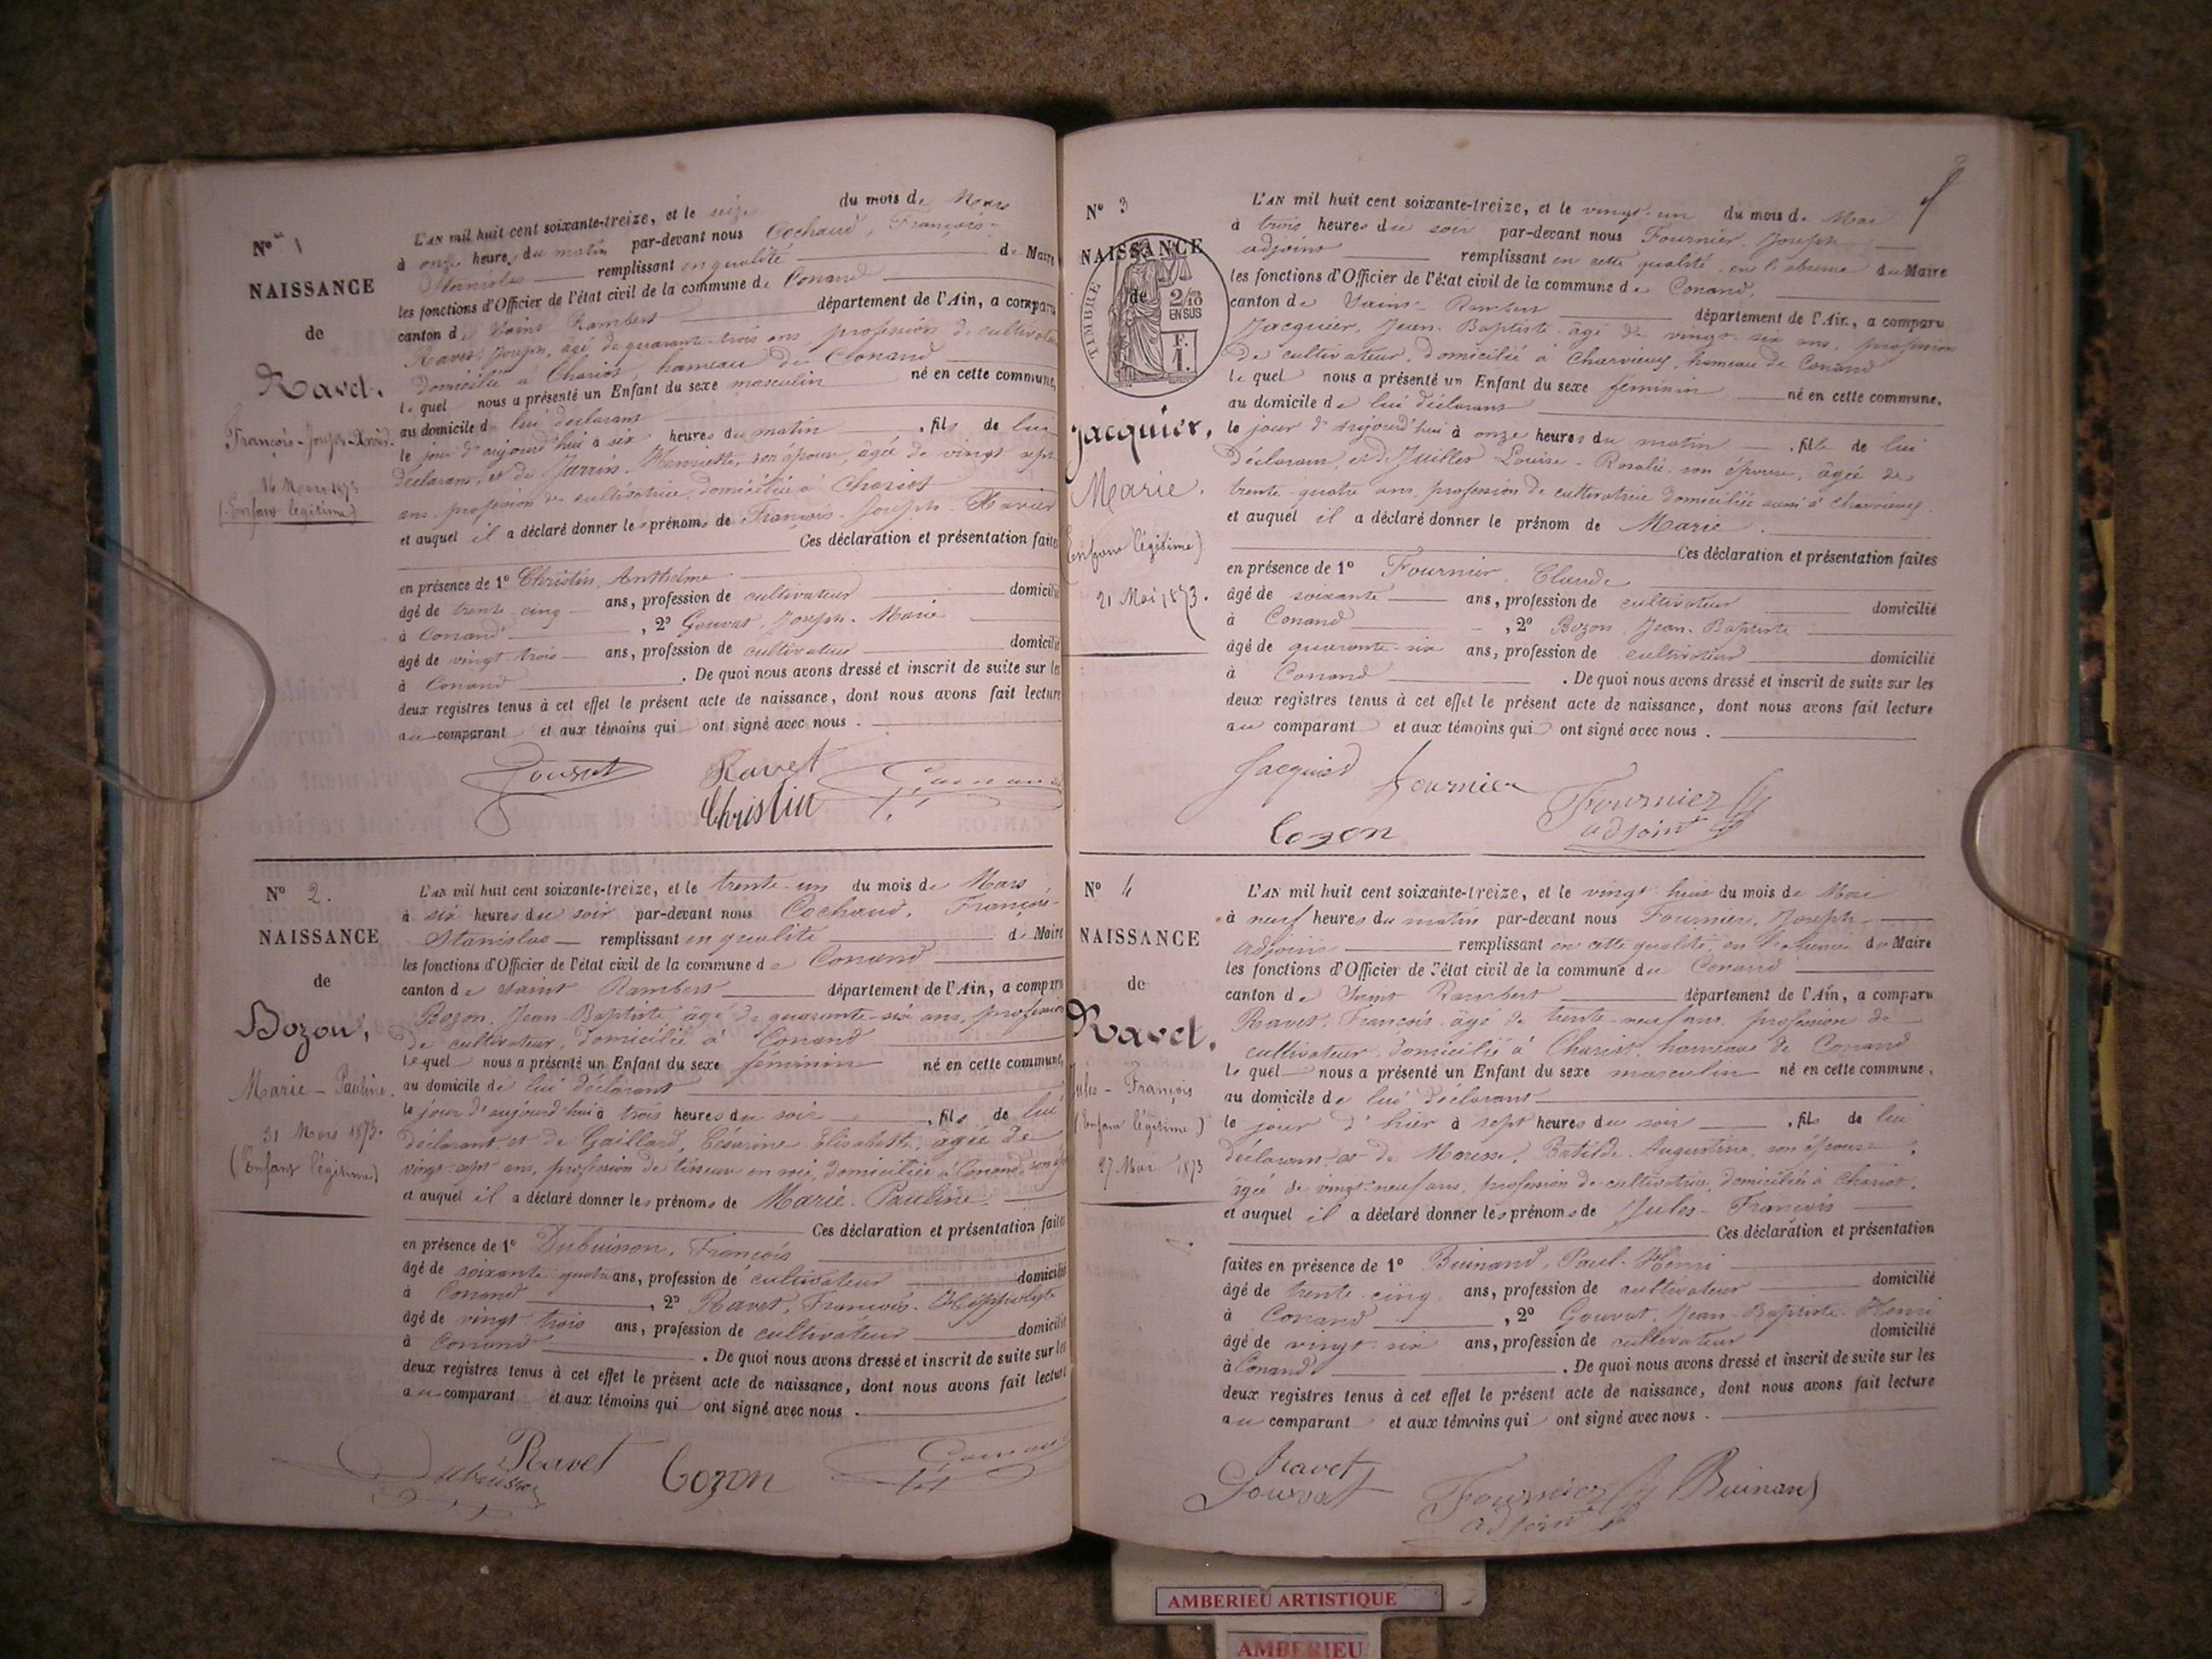 N° 1
NAISSANCE
de
Ravet.
François-Joseph-Xavier
16 Mars 1873
(Enfant légitime)
L'AN mil huit cent soixante-treize, et le seize du mois de Mars
à onze heures du matin par-devant nous Cochaud, François-
Stanislas remplissant en qualité de Maire
les fonctions d'Officier de l'état civil de la commune de Conand
canton de Saint Rambert département de l'Ain, a comparu
Ravet, Joseph, âgé de quarante-trois ans, profession de cultivateur
domicilié à Chariot, hameau de Conand
lequel nous a présenté un Enfant du sexe masculin né en cette commune,
au domicile de lui déclarant
le jour d'aujourd'hui à six heures du matin, fils de lui
déclarant, et de Henriette, son épouse, âgée de vingt sept
ans, profession de cultivatrice, domiciliée à Chariot
et auquel il a déclaré donner les prénoms de François-Joseph-Xavier
Ces déclaration et présentation faites
en présence de 1° Christin, Anthelme
âgé de trente cinq ans, profession de cultivateur domicilié
à Conand, 2° Gouvat, Joseph-Marie
âgé de vingt trois ans, profession de cultivateur domicilié
à Conand. De quoi nous avons dressé et inscrit de suite sur les
deux registres tenus à cet effet le présent acte de naissance, dont nous avons fait lecture
au comparant et aux témoins qui ont signé avec nous.
Gouvat Ravet
Christin
N° 2.
NAISSANCE
de
Bozon,
Marie-Pauline.
31 Mars 1873.
(Enfant légitime)
L'AN mil huit cent soixante-treize, et le trente-un du mois de Mars
à six heures du soir par-devant nous Cochaud, François-
Stanislas remplissant en qualité de Maire
les fonctions d'Officier de l'état civil de la commune de Conand
canton de Saint Rambert département de l'Ain, a comparu
Bozon, Jean-Baptiste âgé de quarante-six ans, profession
de cultivateur, domicilié à Conand
lequel nous a présenté un Enfant du sexe féminin né en cette commune,
au domicile de lui déclarant
le jour d'aujourd'hui à trois heures du soir, fils de lui
déclarant et de Gaillard, Césarine Elisabeth, agée de
vingt-sept ans, profession de tisseuse en soie, domiciliée à Conand, son
et auquel il a déclaré donner les prénoms de Marie-Pauline
Ces déclaration et présentation faites
en présence de 1° Dubuisson, François
âgé de soixante quatre ans, profession de cultivateur domicilié
à Conand, 2° Ravet, François-Hippolyte
âgé de vingt trois ans, profession de cultivateur domicilié
à Conand. De quoi nous avons dressé et inscrit de suite sur les
deux registres tenus à cet effet le présent acte de naissance, dont nous avons fait lecture
au comparant et aux témoins qui ont signé avec nous.
Dubuisson Ravet Bozon
N° 3
NAISSANCE
de
TIMBRE
2/10
EN SUS
F.
1.
Jacquier,
Marie.
(Enfant légitime)
21 Mai 1873.
L'AN mil huit cent soixante-treize, et le vingt-un du mois de Mai
à trois heures du soir par-devant nous Fournier, Joseph
adjoint remplissant en cette qualité en l'absence du Maire
les fonctions d'Officier de l'état civil de la commune de Conand,
canton de Saint-Rambert département de l'Ain, a comparu
Jacquier, Jean-Baptiste âgé de vingt-six ans, profession
de cultivateur, domicilié à Charvieux, hameau de Conand
lequel nous a présenté un Enfant du sexe féminin né en cette commune,
au domicile de lui déclarant
le jour d'aujourd'hui à onze heures du matin, fille de lui
déclarant, et de Juillet Louise-Rosalie son épouse, âgée de
trente-quatre ans, profession de cultivatrice domiciliée aussi à Charvieux
et auquel il a déclaré donner le prénom de Marie.
Ces déclaration et présentation faites
en présence de 1° Fournier, Claude
âgé de soixante ans, profession de cultivateur domicilié
à Conand, 2° Bozon, Jean-Baptiste
âgé de quarante-six ans, profession de cultivateur domicilié
à Conand. De quoi nous avons dressé et inscrit de suite sur les
deux registres tenus à cet effet le présent acte de naissance, dont nous avons fait lecture
au comparant et aux témoins qui ont signé avec nous.
Jacquier Fournier
Bozon Fournier
adjoint
N° 4
NAISSANCE
de
Ravet.
Jules-François
(Enfant légitime)
27 Mai 1873
L'AN mil huit cent soixante-treize, et le vingt-huit du mois de Mai
à neuf heures du matin par-devant nous Fournier, Joseph
adjoint remplissant en cette qualité, en l'absence du Maire
les fonctions d'Officier de l'état civil de la commune de Conand
canton de Saint Rambert département de l'Ain, a comparu
Ravet, François âgé de trente-neuf ans, profession de
cultivateur, domicilié à Chariot, hameau de Conand
lequel nous a présenté un Enfant du sexe masculin né en cette commune,
au domicile de lui déclarant
le jour d'hier à sept heures du soir, fils de lui
déclarant et de Batilde Augustine, son épouse,
âgée de vingt-neuf ans, profession de cultivatrice, domiciliée à Chariot,
et auquel il a déclaré donner les prénoms de Jules-François
Ces déclaration et présentation
faites en présence de 1° Buinand, Paul-Henri
âgé de trente-cinq ans, profession de cultivateur domicilié
à Conand, 2° Gouvat, Jean-Baptiste-Henri
âgé de vingt-six ans, profession de cultivateur domicilié
à Conand. De quoi nous avons dressé et inscrit de suite sur les
deux registres tenus à cet effet le présent acte de naissance, dont nous avons fait lecture
au comparant et aux témoins qui ont signé avec nous.
Ravet
Gouvat Fournier Buinand
adjoint
AMBERIEU ARTISTIQUE
AMBERIEU